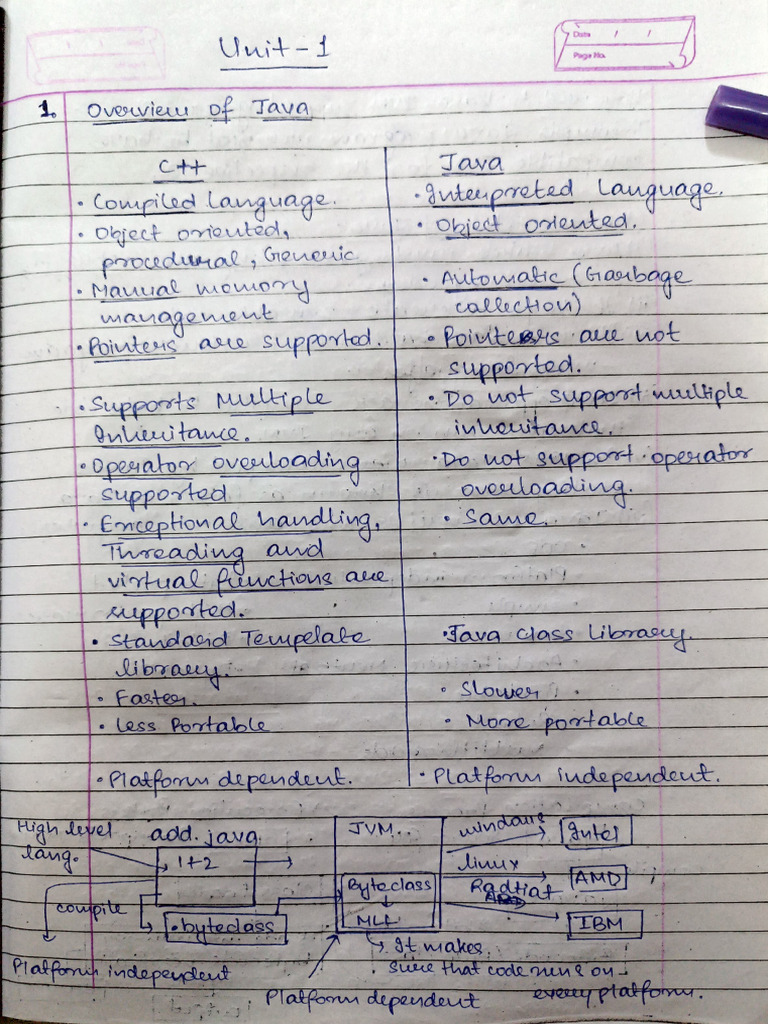 Unit - 1
Date / /
Page No.
1. Overview of Java
C++
• Compiled Language.
• Object oriented,
procedural, Generic
• Manual memory
management
• Pointers are supported.
• Supports Multiple
Inheritance.
• Operator overloading
supported
• Exceptional handling,
Threading and
virtual functions are
supported.
• Standard Tempelate
library.
• Faster.
• Less Portable
• Platform dependent.
Java
• Interpreted Language.
• Object oriented.
• Automatic (Garbage
collection)
• Pointers are not
supported.
• Do not support multiple
inheritance.
• Do not support operator
overloading.
• Same.
• Java class Library.
• Slower
• More portable
• Platform independent.
High level
lang.
add.java
1+2
compile
.byteclass
Platform independent
JVM..
Byteclass
Platform dependent
It makes
sure that code runs on
every platform.
Intel
linux
AMD
IBM